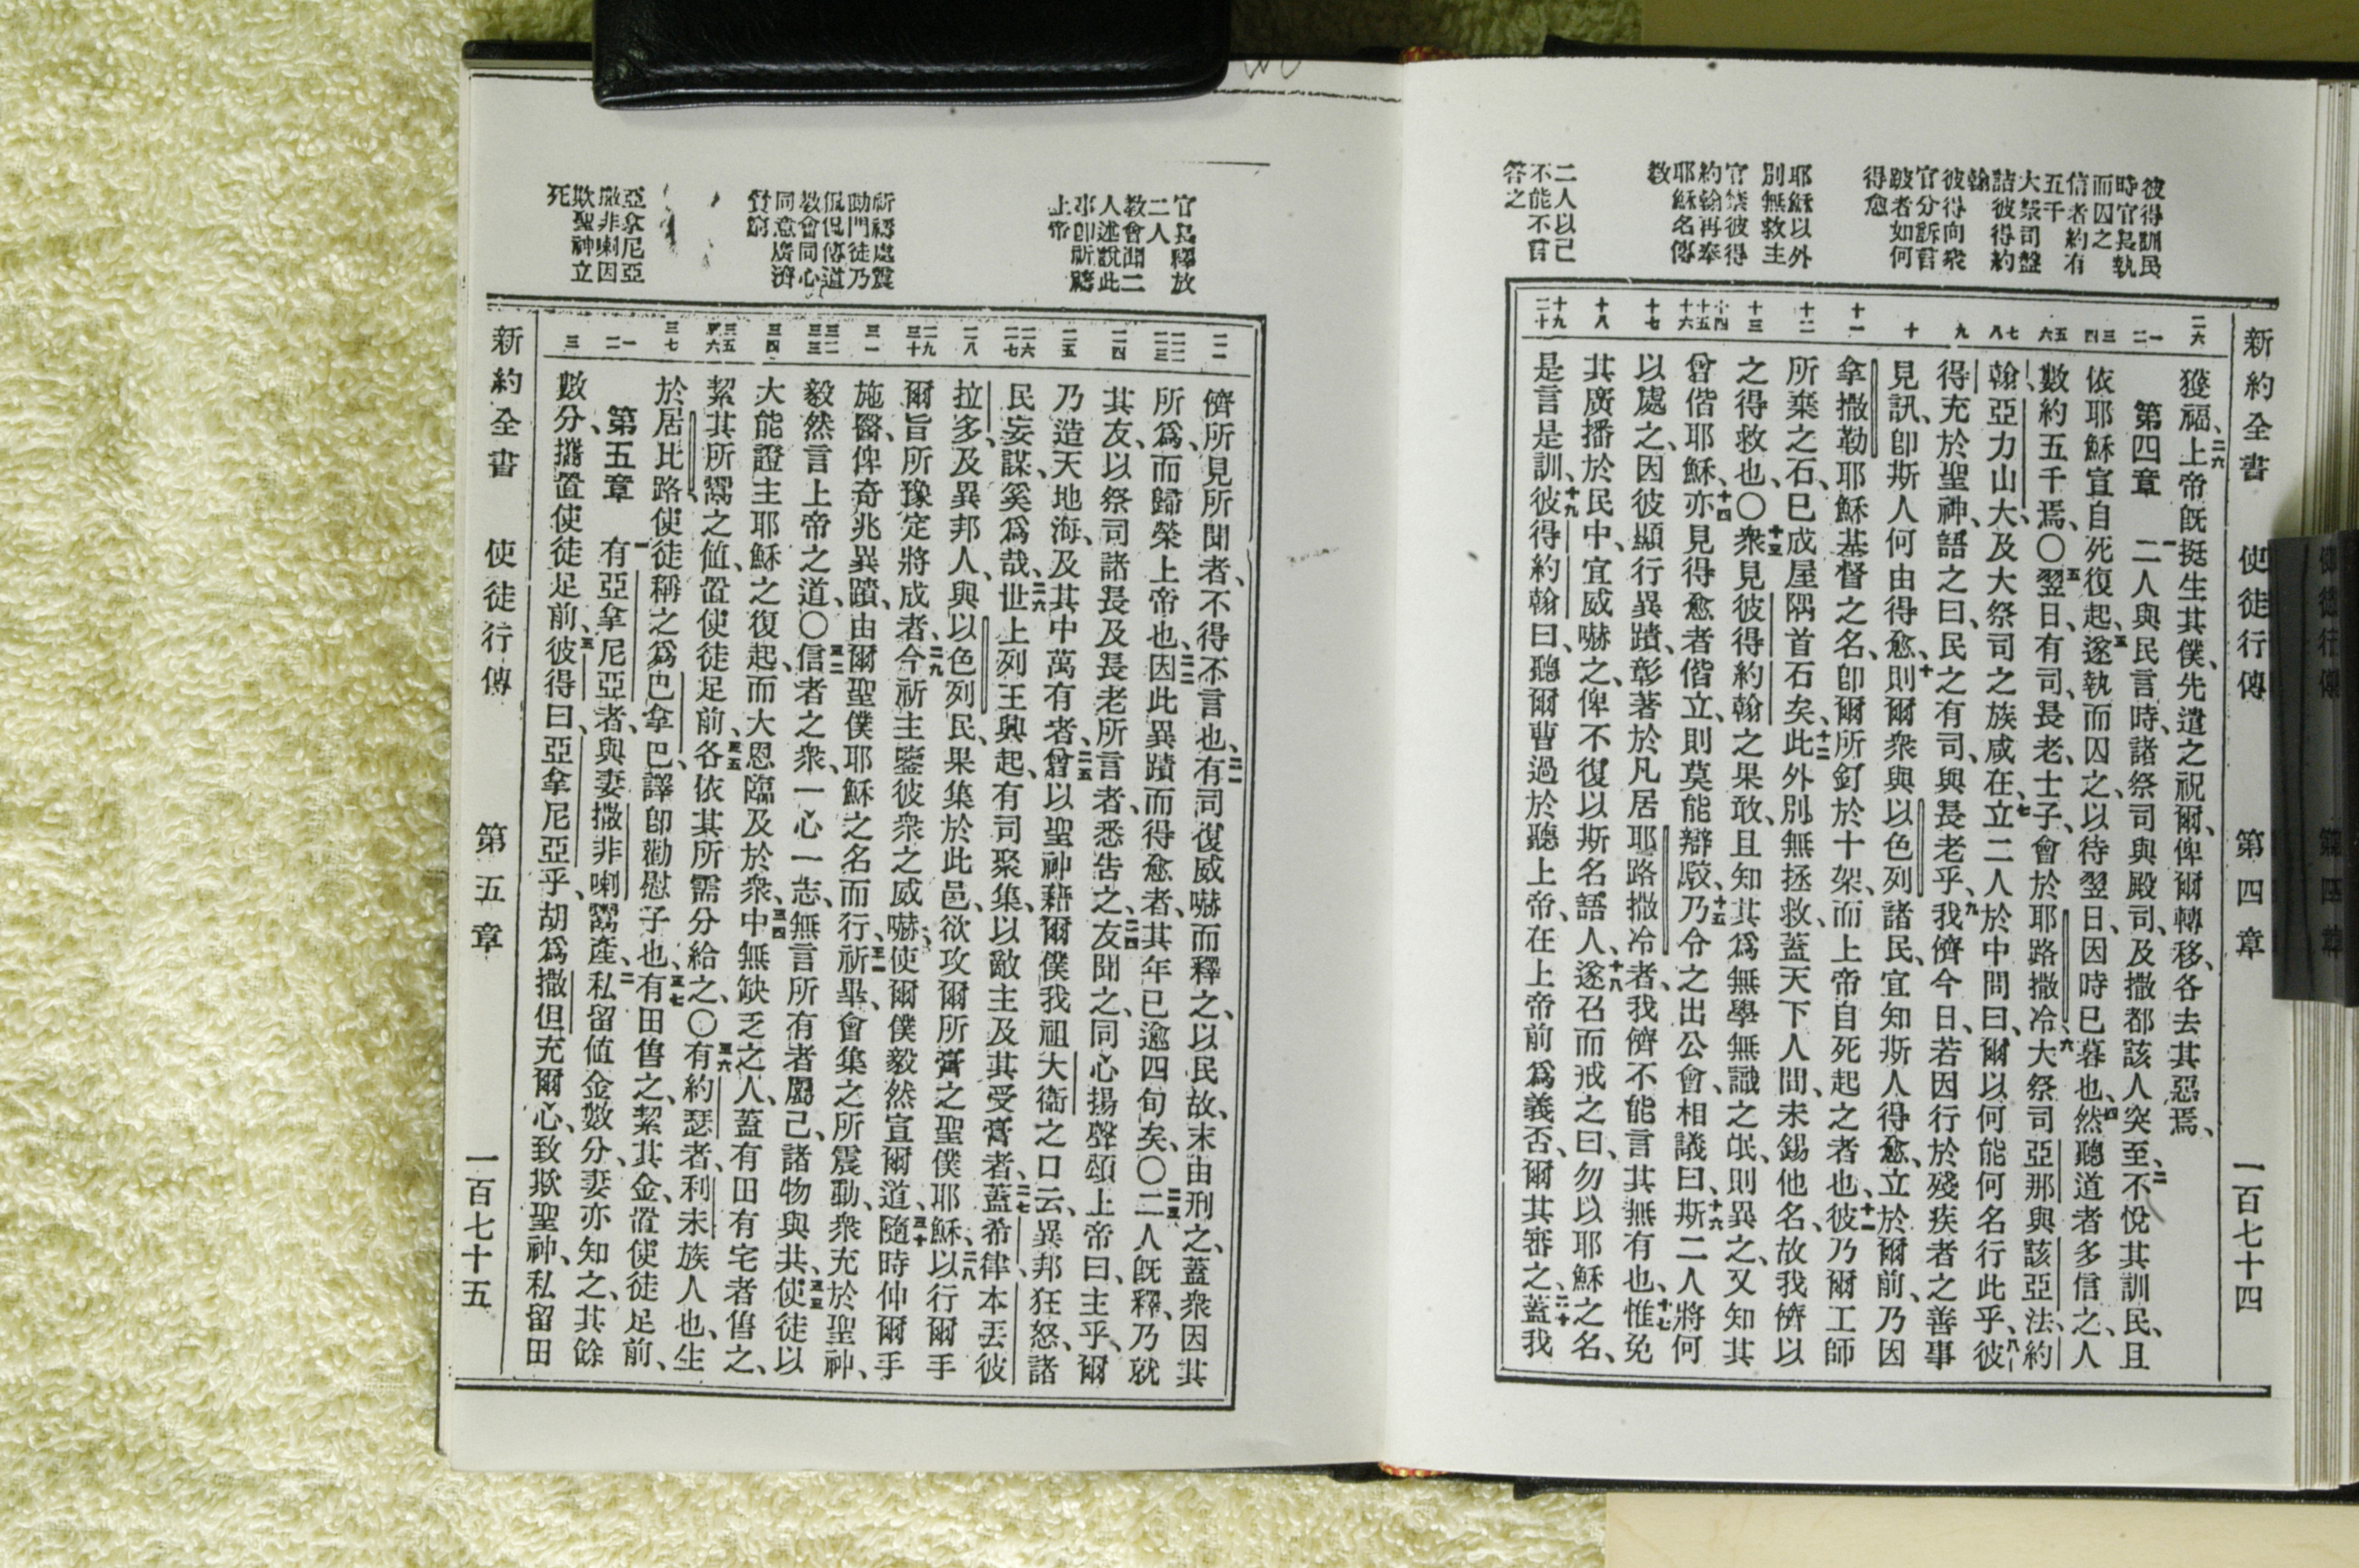 彼得訓民
時官長執
而囚之
信者約有
五千
大祭司盤
詰彼得約
翰
彼得向衆
官分訴言
跛者如何
得愈
耶穌以外
別無救主
官禁彼得
約翰再奉
耶穌名傳
教
二人以己
不能不言
答之
新約全書 使徒行傳 第四章 一百七十四
二六 一 二 三 四 五 六 七 八 九 十 十一 十二 十三 十四 十五 十六 十七 十八 十九 二十
獲福、二六上帝旣挺生其僕、先遣之祝爾、俾爾轉移、各去其惡焉、
第四章 一二人與民言時、諸祭司與殿司、及撒都該人突至、二不悅其訓民、且
依耶穌宣自死復起、三遂執而囚之、以待翌日、因時已暮也、四然聽道者多信之、人
數約五千焉、〇五翌日、有司、長老、士子、會於耶路撒冷、六大祭司亞那與該亞法、約
翰、亞力山大、及大祭司之族咸在、七立二人於中問曰、爾以何能何名行此乎、八彼
得充於聖神、語之曰、民之有司、與長老乎、九我儕今日、若因行於殘疾者之善事
見訊、卽斯人何由得愈、十則爾衆與以色列諸民、宜知斯人得愈、立於爾前、乃因
拿撒勒耶穌基督之名、卽爾所釘於十架、而上帝自死起之者也、十一彼乃爾工師
所棄之石、已成屋隅首石矣、十二此外別無拯救、蓋天下人間、未錫他名、故我儕以
之得救也、〇十三衆見彼得約翰之果敢、且知其爲無學無識之氓、則異之、又知其
曾偕耶穌、十四亦見得愈者偕立、則莫能辯駁、十五乃令之出公會、相議曰、十六斯二人將何
以處之、因彼顯行異蹟、彰著於凡居耶路撒冷者、我儕不能言其無有也、十七惟免
其廣播於民中、宜威嚇之、俾不復以斯名語人、十八遂召而戒之曰、勿以耶穌之名、
是言是訓、十九彼得約翰曰、聽爾曹過於聽上帝、在上帝前爲義否、爾其審之、二十蓋我
官長釋放
二人
教會聞二
人述說此
事卽祈禱
上帝
祈禱處震
動門徒乃
侃侃傳道
教會同心
同意廣濟
貧窮
亞拿尼亞
撒非喇因
欺聖神立
死
二一 二二 二三 二四 二五 二六 二七 二八 二九 三十 三一 三二 三三 三四 三五 三六 三七 一 二 三
儕所見所聞者、不得不言也、二一有司復威嚇而釋之、以民故、未由刑之、蓋衆因其
所爲、而歸榮上帝也、二二因此異蹟而得愈者、其年已逾四旬矣、〇二三二人旣釋、乃就
其友、以祭司諸長及長老所言者、悉告之、二四友聞之、同心揚聲頌上帝曰、主乎、爾
乃造天地海、及其中萬有者、二五曾以聖神藉爾僕我祖大衛之口云、異邦狂怒、諸
民妄謀、奚爲哉、二六世上列王興起、有司聚集、以敵主及其受膏者、二七蓋希律、本丟彼
拉多、及異邦人、與以色列民、果集於此邑、欲攻爾所膏之聖僕耶穌、二八以行爾手
爾旨所豫定將成者、二九今祈主鑒彼衆之威嚇、使爾僕毅然宣爾道、三十隨時伸爾手
施醫、俾奇兆異蹟、由爾聖僕耶穌之名而行、三一祈畢、會集之所震動、衆充於聖神、
毅然言上帝之道、〇三二信者之衆、一心一志、無言所有者屬己、諸物與共、三三使徒以
大能證主耶穌之復起、而大恩臨及於衆、三四中無缺乏之人、蓋有田有宅者售之、
絜其所鬻之値、置使徒足前、三五各依其所需分給之、〇三六有約瑟者、利未族人也、生
於居比路、使徒稱之爲巴拿巴、譯卽勸慰子也、三七有田售之、絜其金、置使徒足前、
第五章 一有亞拿尼亞者、與妻撒非喇鬻產、二私留値金數分、妻亦知之、其餘
數分、攜置使徒足前、三彼得曰、亞拿尼亞乎、胡爲撒但充爾心、致欺聖神、私留田
新約全書 使徒行傳 第五章 一百七十五